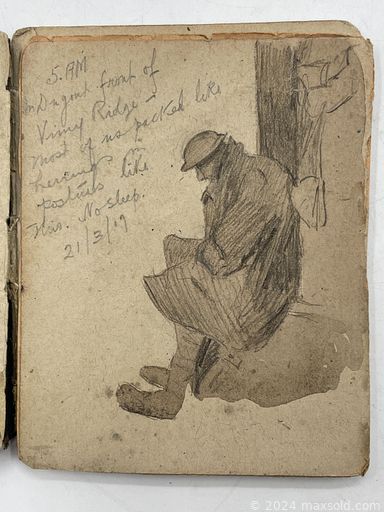 5. AM
in Dugout front of
Vimy Ridge -
most of us packed like
herrings in
postures like
this. No sleep.
21/3/17
© 2024 maxsold.com